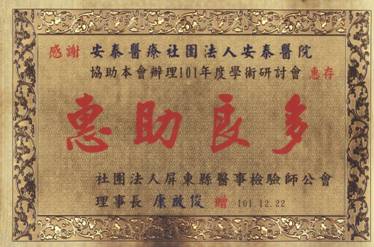 感謝 安泰醫療社團法人安泰醫院
協助本會辦理101年度學術研討會 惠存
惠助良多
社團法人屏東縣醫事檢驗師公會
理事長 康啟俊 贈 101.12.22